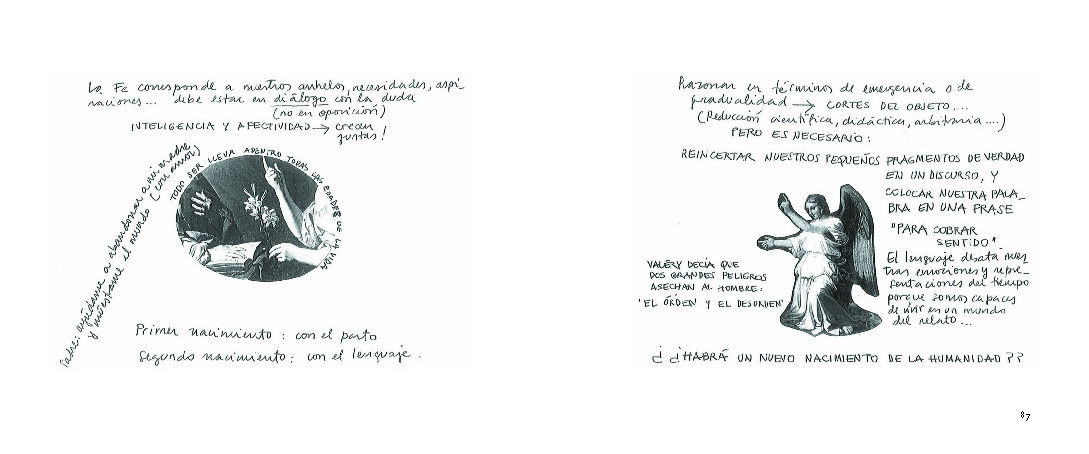 La Fe corresponde a nuestros anhelos, necesidades, aspi-
raciones... debe estar en diálogo con la duda
(no en oposición)
INTELIGENCIA Y AFECTIVIDAD → crecen
juntas!
TODO SER LLEVA ADENTRO TODAS LAS EDADES DE LA VIDA
Padre: ayúdame a abandonar a mi madre
y muéstrame el mundo (con amor)
Primer nacimiento: con el parto
Segundo nacimiento: con el lenguaje.
Razonar en términos de emergencia o de
gradualidad → CORTES DEL OBJETO....
(Reducción científica, didáctica, arbitraria....)
PERO ES NECESARIO:
REINCERTAR NUESTROS PEQUEÑOS FRAGMENTOS DE VERDAD
EN UN DISCURSO, Y
COLOCAR NUESTRA PALA_
BRA EN UNA FRASE
"PARA COBRAR
SENTIDO".
El lenguaje desata nues
tras emociones y repre-
sentaciones del tiempo
porque somos capaces
de vivir en un mundo
del relato...
VALÉRY DECÍA QUE
DOS GRANDES PELIGROS
ASECHAN AL HOMBRE:
"EL ÓRDEN Y EL DESORDEN"
¿ ¿HABRÁ UN NUEVO NACIMIENTO DE LA HUMANIDAD ??
87